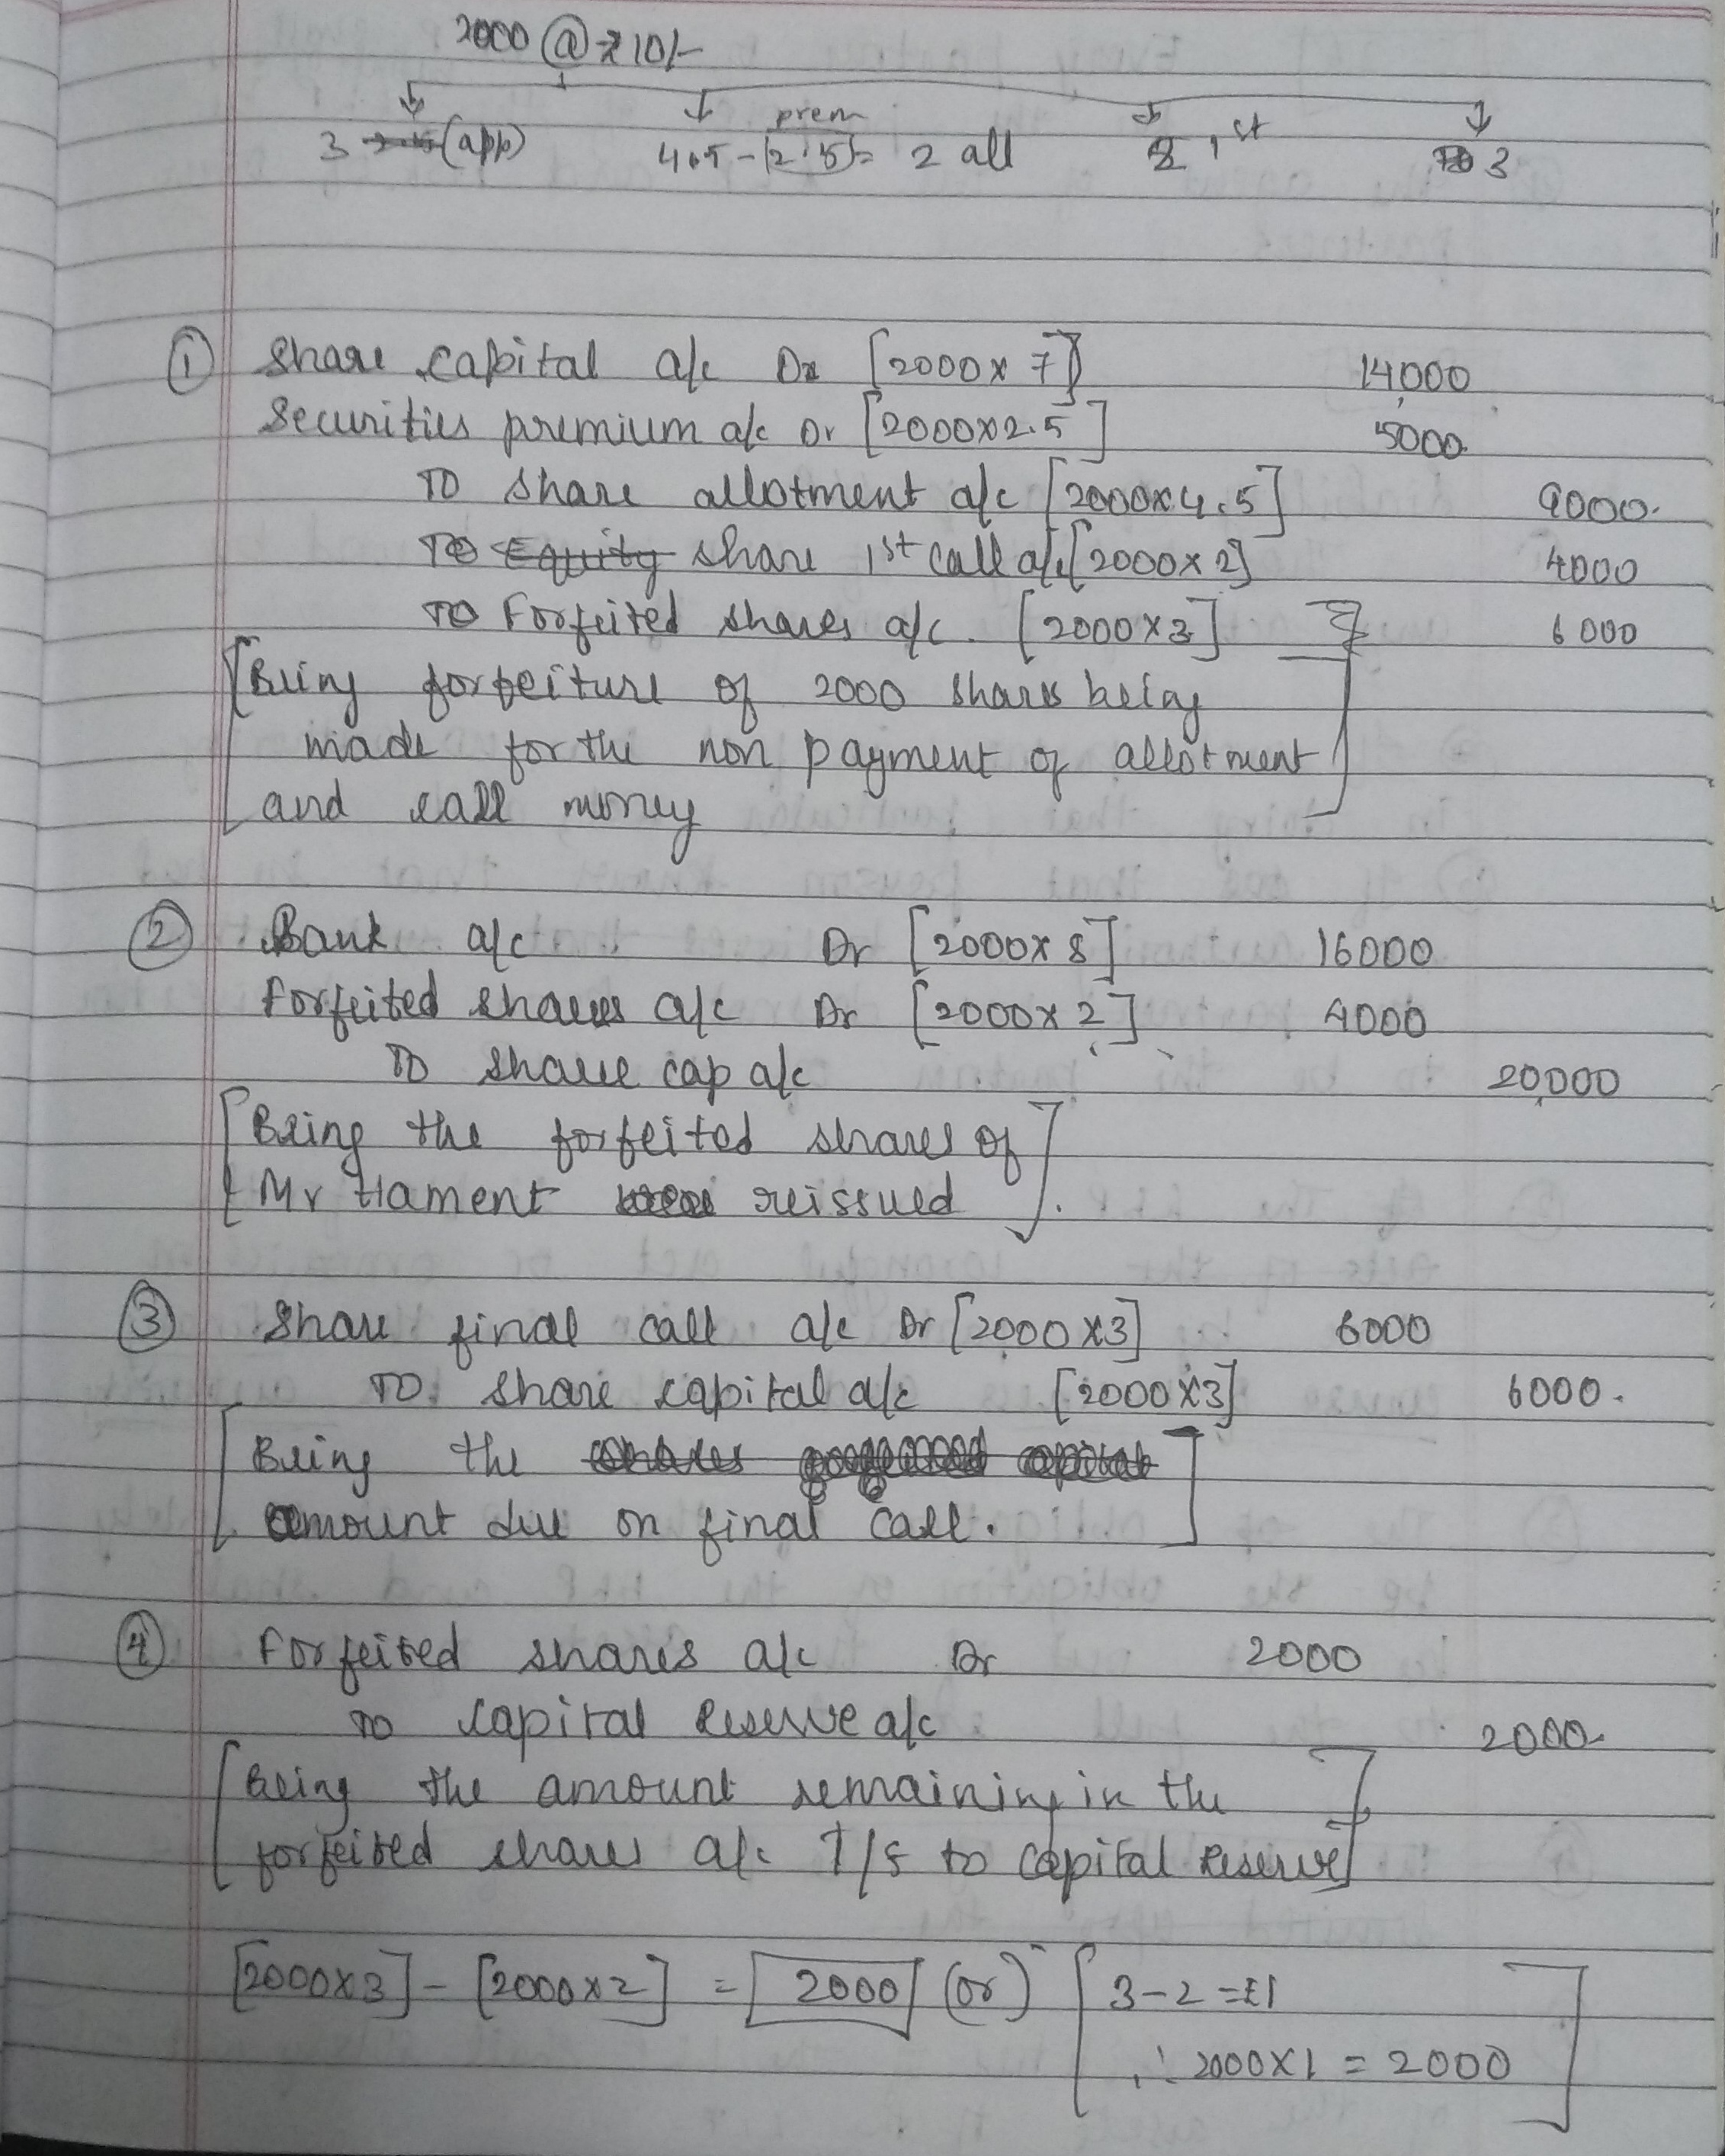 2000 @ ₹10/-
prem
3 (app) 4.5 - 2.5 = 2 all 2 1st 3
① Share Capital a/c Dr [2000 x 7] 14,000
Securities premium a/c Dr [2000x2.5] 5000
To share allotment a/c [2000x4.5] 9000.
To Equity share 1st call a/c [2000 x 2] 4000
To Forfeited shares a/c. [2000 x 3] 6000
[Being forfeiture of 2000 shares being
made for the non payment of allotment
and call money]
② Bank a/c Dr [2000x 8] 16000
Forfeited shares a/c Dr [2000 x 2] 4000
To share cap a/c 20,000
[Being the forfeited shares of
Mr Hament reissued].
③ Share final call a/c Dr [2000 x3] 6000
To share capital a/c [2000 x3] 6000.
[Being the shares capital
amount due on final call.]
④ Forfeited shares a/c Dr 2000
To Capital Reserve a/c 2000
[Being the amount remaining in the
forfeited shares a/c T/s to Capital Reserve]
[2000x3] - [2000x2] = 2000 (or) [3-2 = ₹1
∴ 2000x1 = 2000]